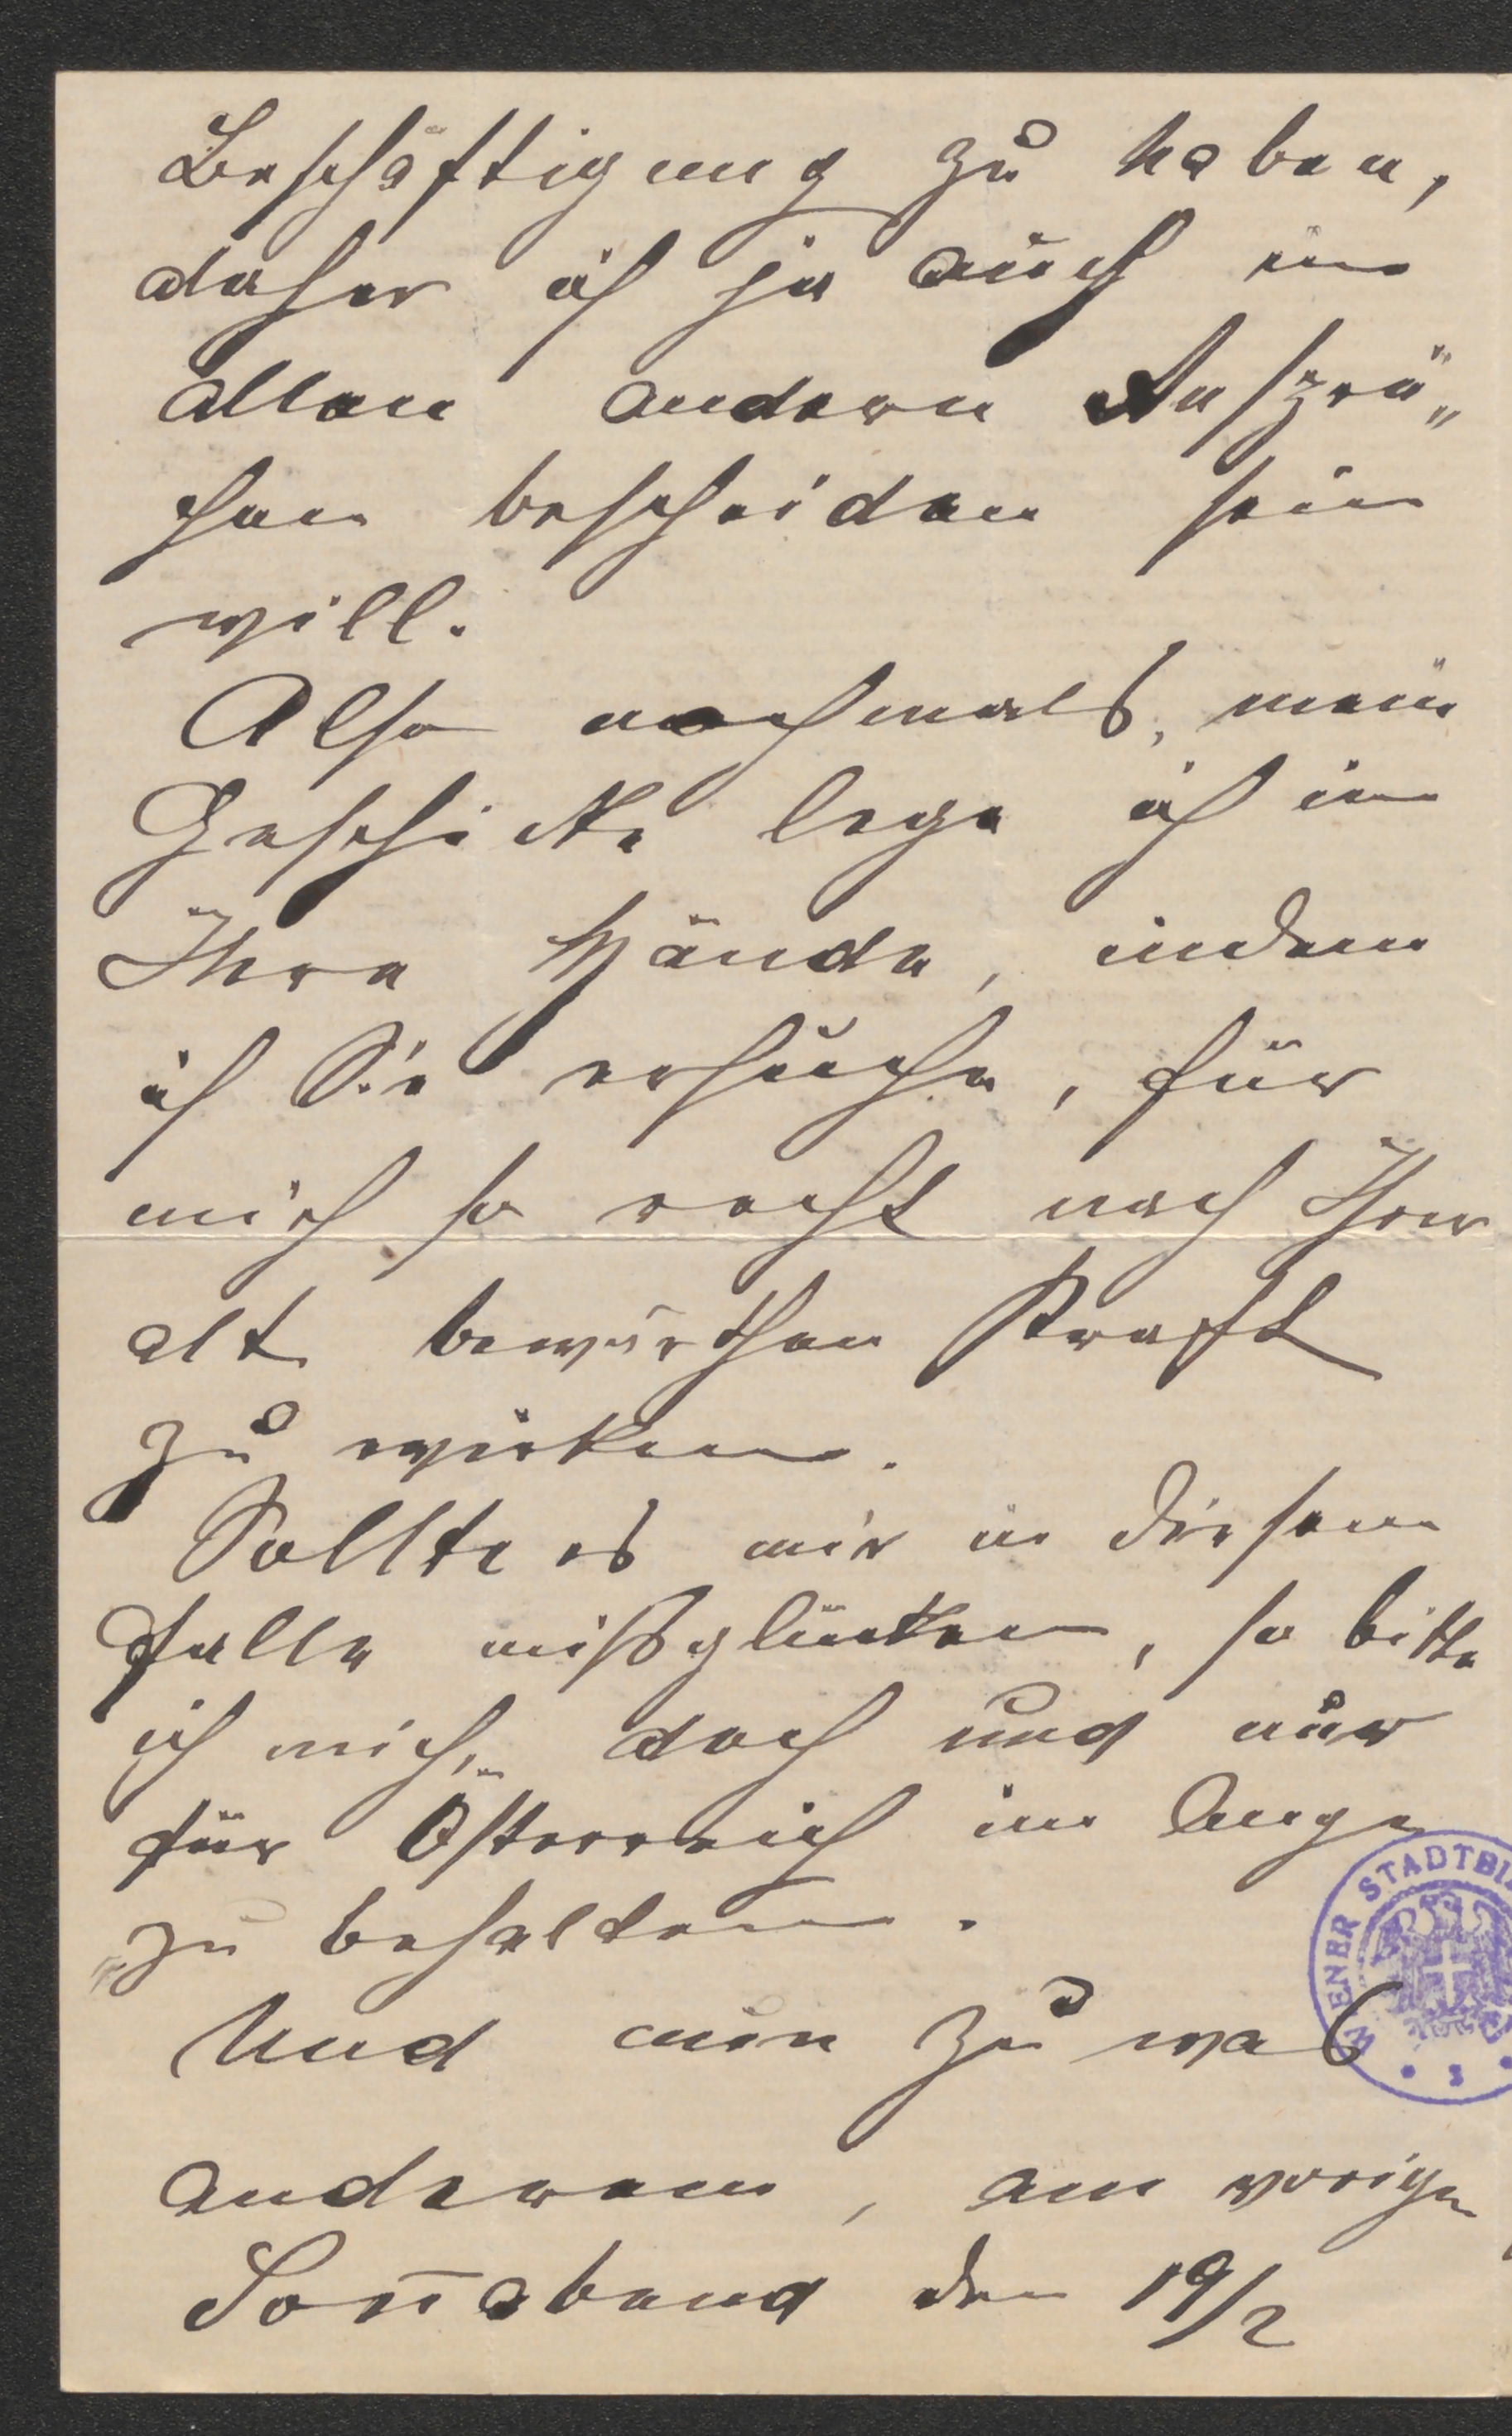 Beschäftigung zu haben,
daher ich ja auch in
allen andern Ansprü„
chen bescheiden sein
will.
Also nochmals, mein
Geschicke lege ich in
Ihre Hände, indem
ich Sie ersuche, für
mich so recht nach Ihrer
alt bewährten Kraft
zu wirken.
Sollte es mir in diesem
Falle mißglücken, so bitte
ich mich, doch und nur
für Österreich im Auge
zu behalten.
Und nun zu was
anderem, am vorigen
Soñabend den 19/2
WIENER STADTBI